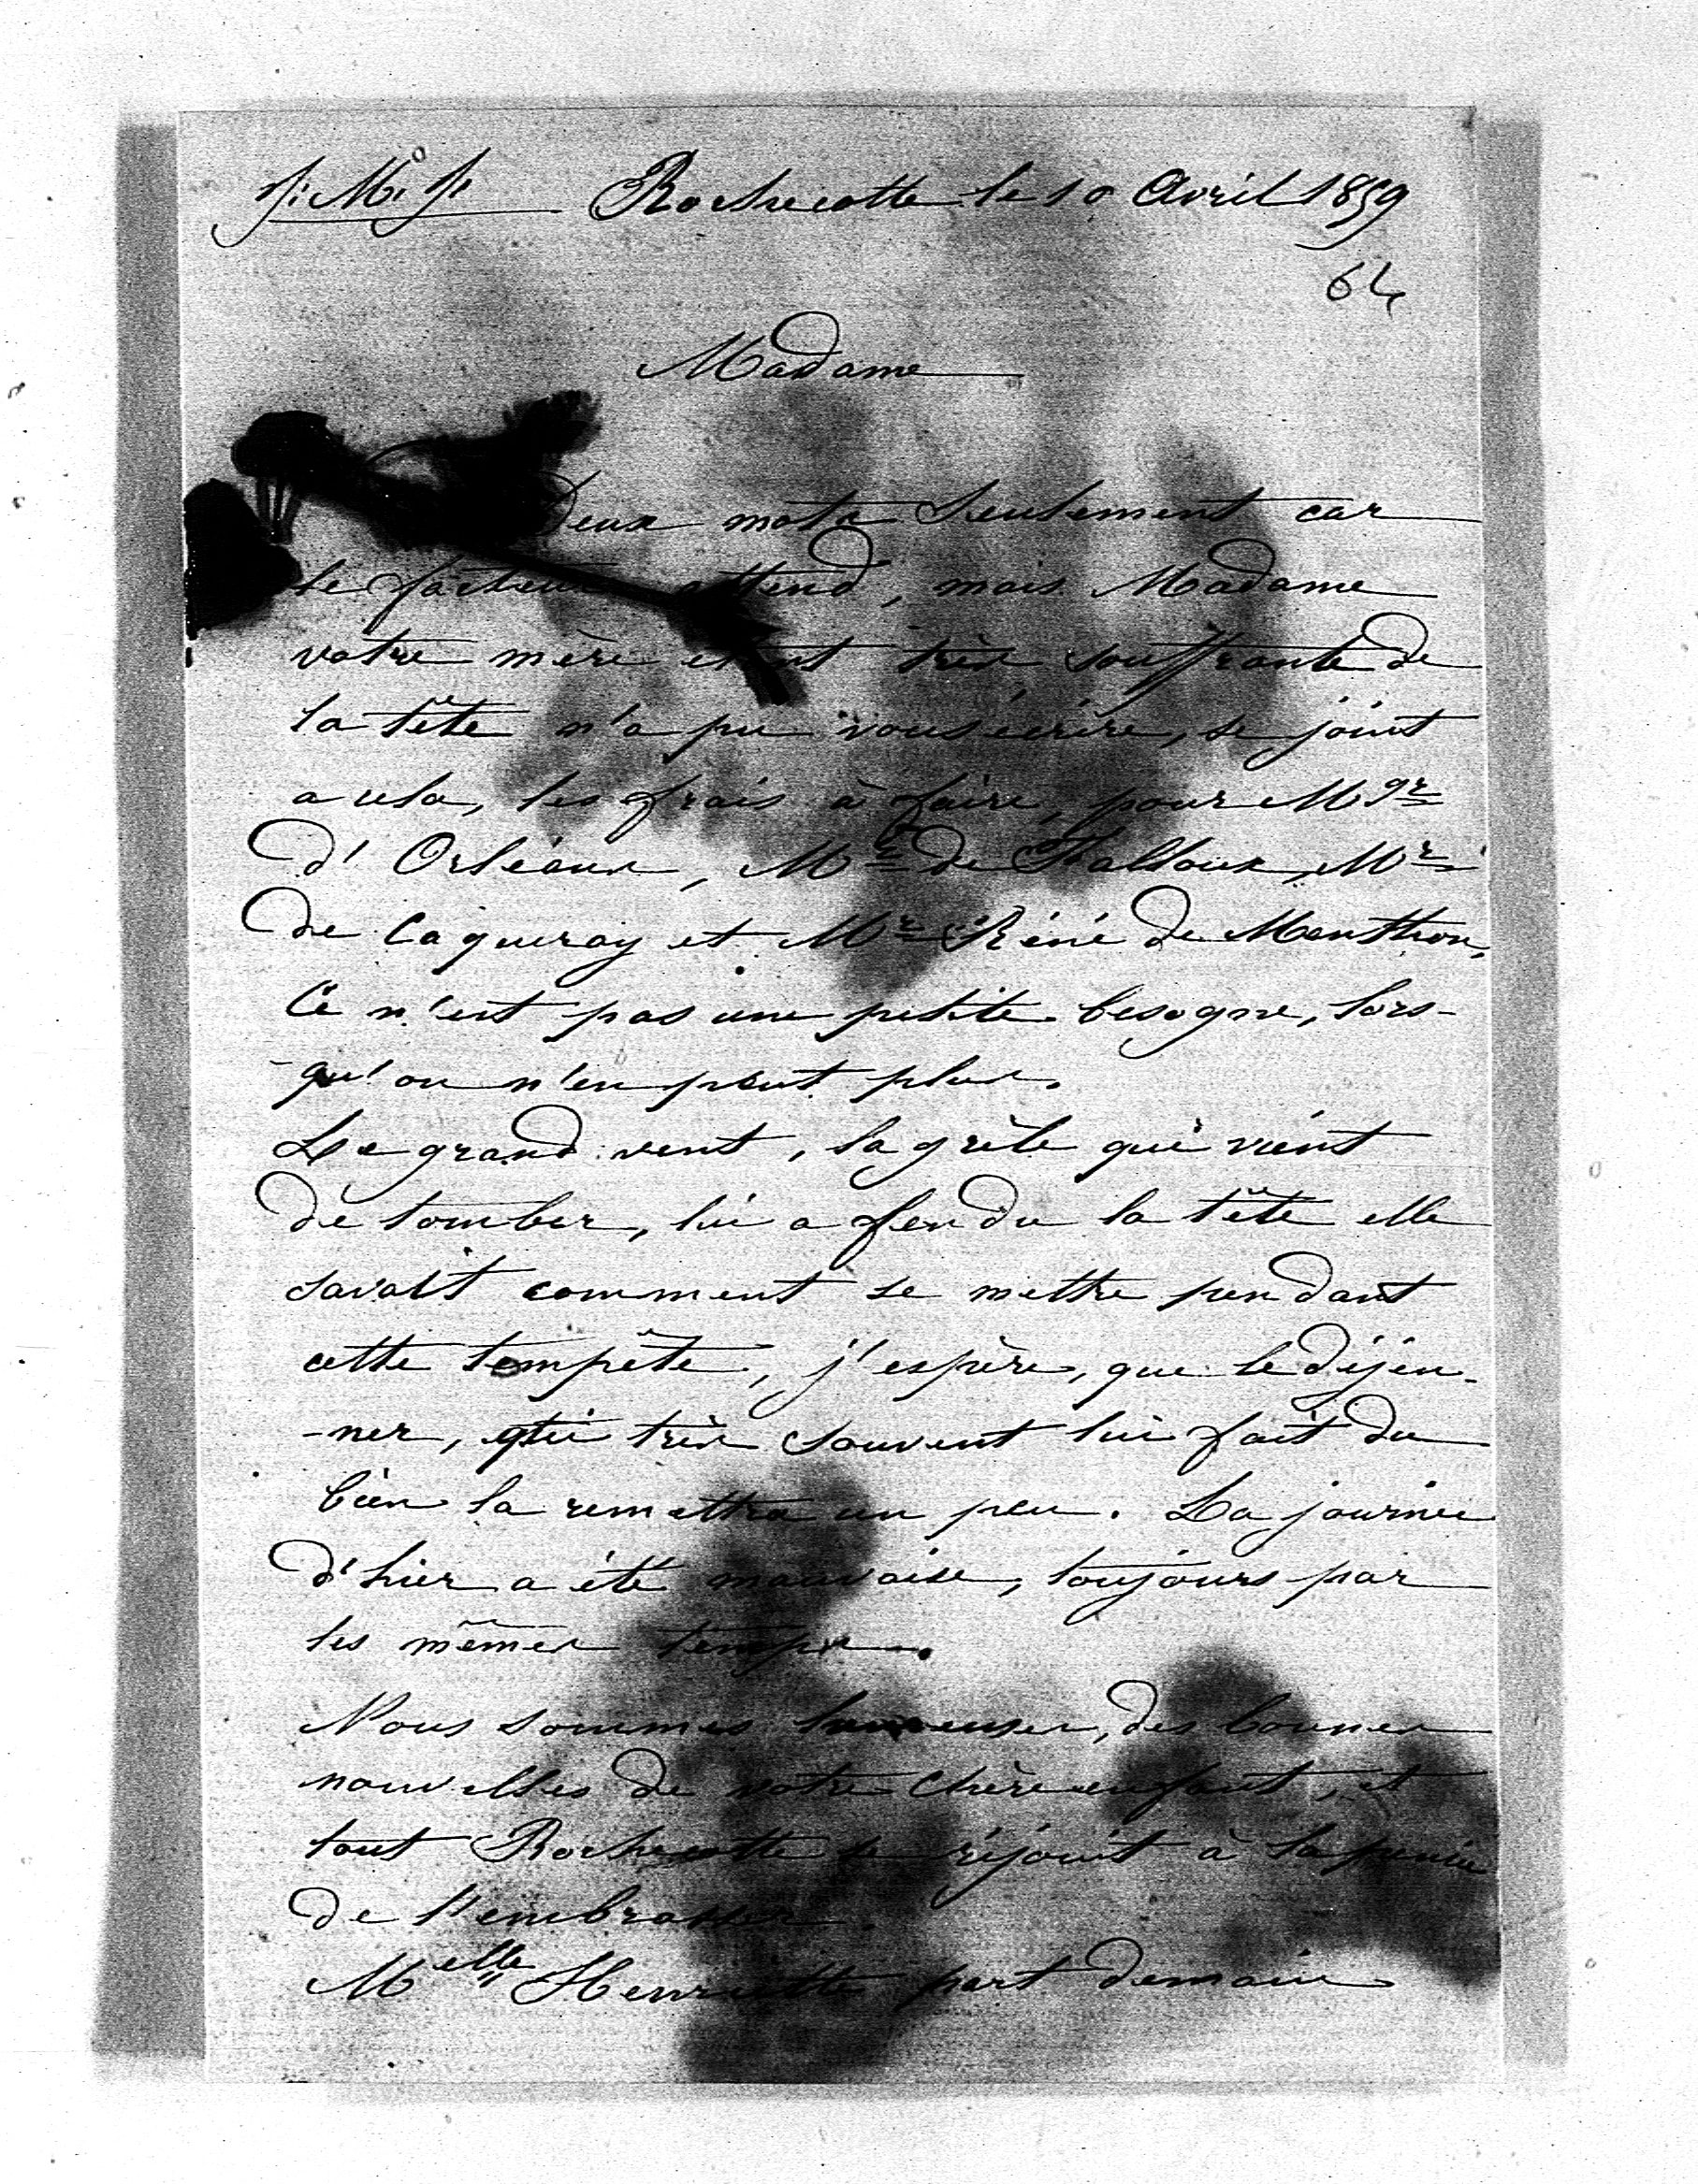 J. M. J. Rochecotte le 10 Avril 1859
64
Madame
Deux mots seulement car
le facteur attend, mais Madame
votre mère étant très souffrante de
la tête n'a pu vous écrire, se joint
a cela, les frais à faire, pour Mgr
d'Orléans, Mr de Falloux, Mr
de Caqueray et Mr Réné de Menthon,
Ce n'est pas une petite besogne, lors-
-qu'on n'en peut plus.
Le grand vent, la grèle qui vient
de tomber, lui a fendu la tête elle
savait comment se mettre pendant
cette tempête, j'espère, que le déjeu-
-ner, qui très souvent lui fait du
bien la remettra un peu. La journée
d'hier a été mauvaise, toujours par
les mêmes temps.
Nous sommes heureuses, des bonnes
nouvelles de votre chère enfant, et
tout Rochecotte se réjouit à la pensée
de l'embrasser.
Melle Henriette part demain